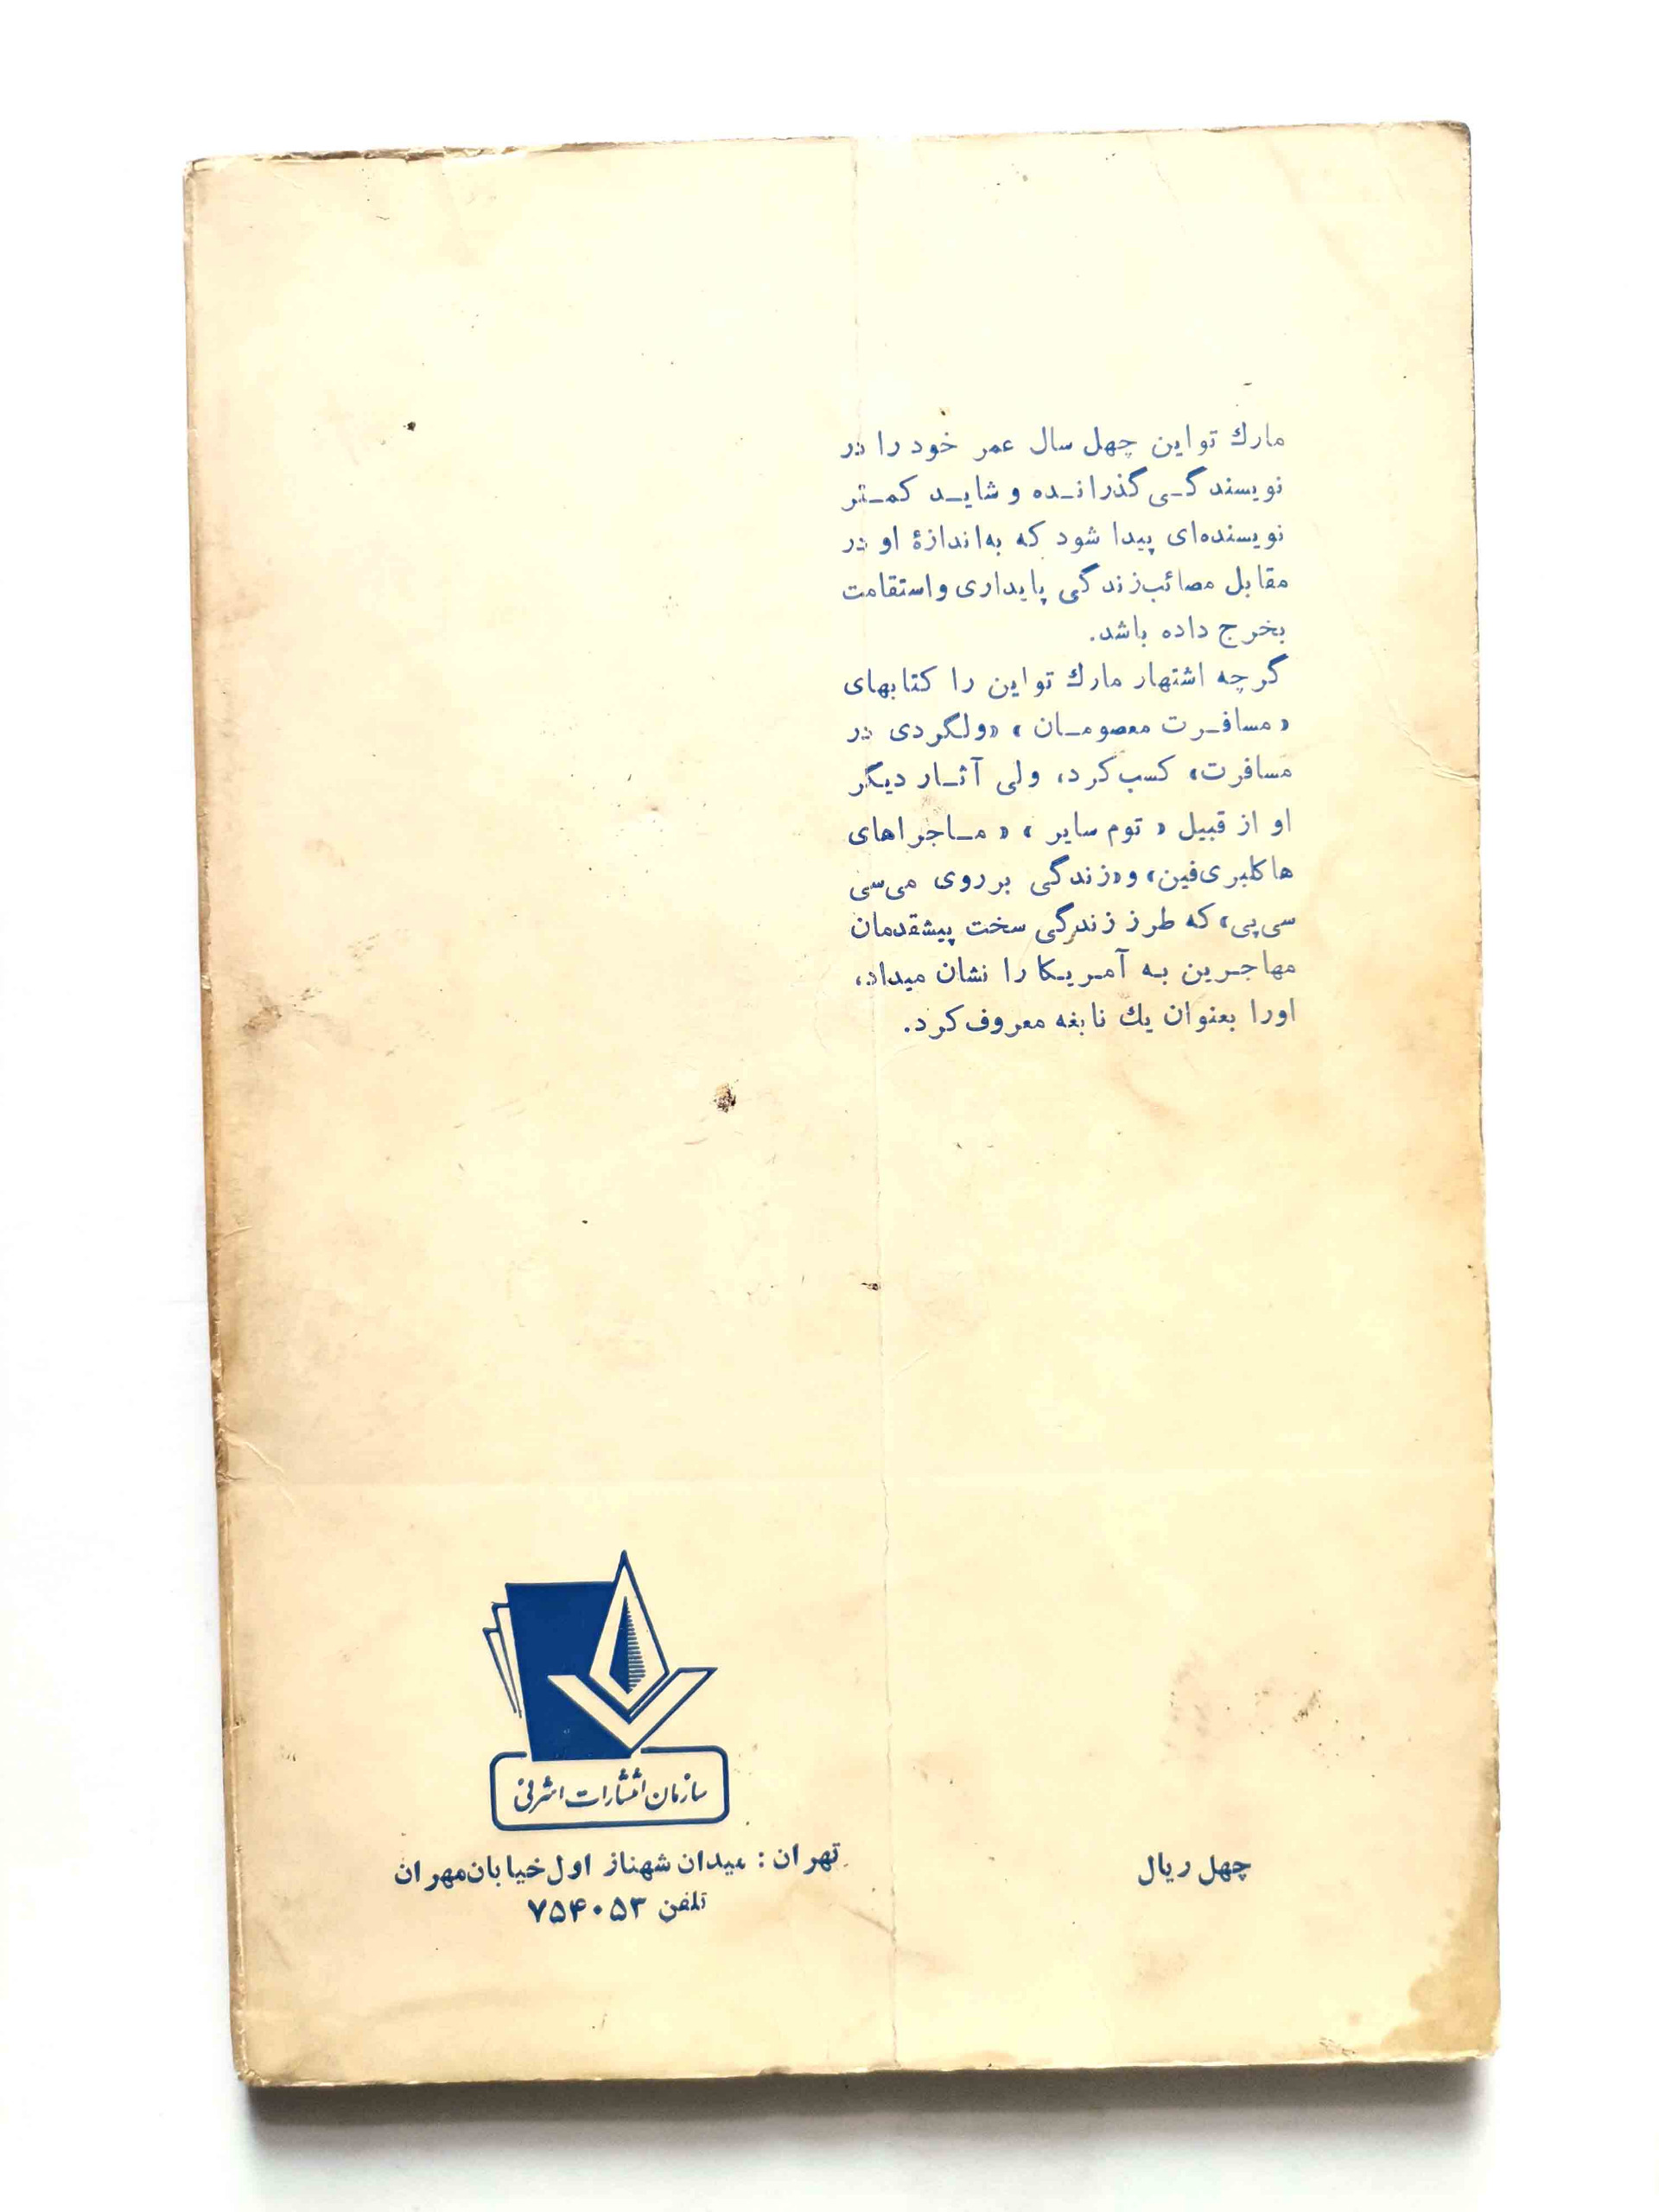 مارك تواین چهل سال عمر خود را در
نویسندگـی گذرانـده و شایـد کمـتر
نویسنده‌ای پیدا شود که به‌اندازهٔ او در
مقابل مصائب زندگی پایداری و استقامت
بخرج داده باشد.
گرچه اشتهار مارك تواین را کتابهای
«مسافـرت معصومـان» «ولگردی در
مسافرت» کسب کرد، ولی آثـار دیگر
او از قبیل «توم سایر» «مـاجراهای
هاکلبری‌فین» و «زندگی بر روی می‌سی
سی‌پی» که طرز زندگی سخت پیشقدمان
مهاجـرین بـه آمـریـکا را نشان میداد،
اورا بعنوان یك نابغه معروف کرد.
سازمان انتشارات اشرفی
تهران: میدان شهناز اول خیابان مهران
تلفن ۷۵۴۰۵۳
چهل ریال